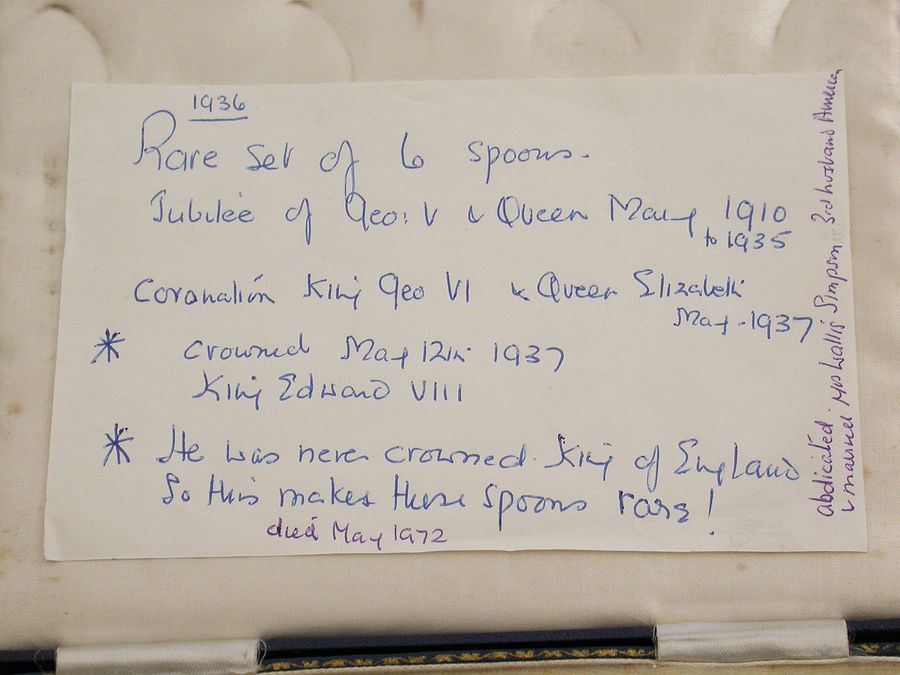 1936
Rare Set of 6 spoons.
Jubilee of Geo: V & Queen Mary 1910
to 1935
Coronation King Geo VI & Queen Elizabeth
May - 1937
* Crowned May 12th 1937
King Edward VIII
* He was never crowned King of England
So this makes these spoons rare!
died May 1972
abdicated.
& married Mrs Wallis Simpson 3rd husband America